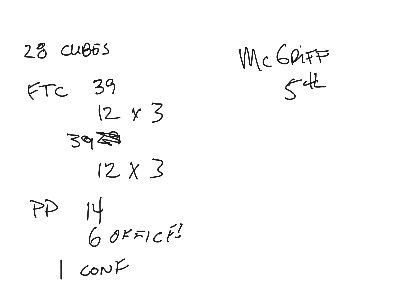 28 CUBES
FTC 39
12 x 3
39
12 x 3
PD 14
6 OFFICES
1 CONF
McGRIFF
5th